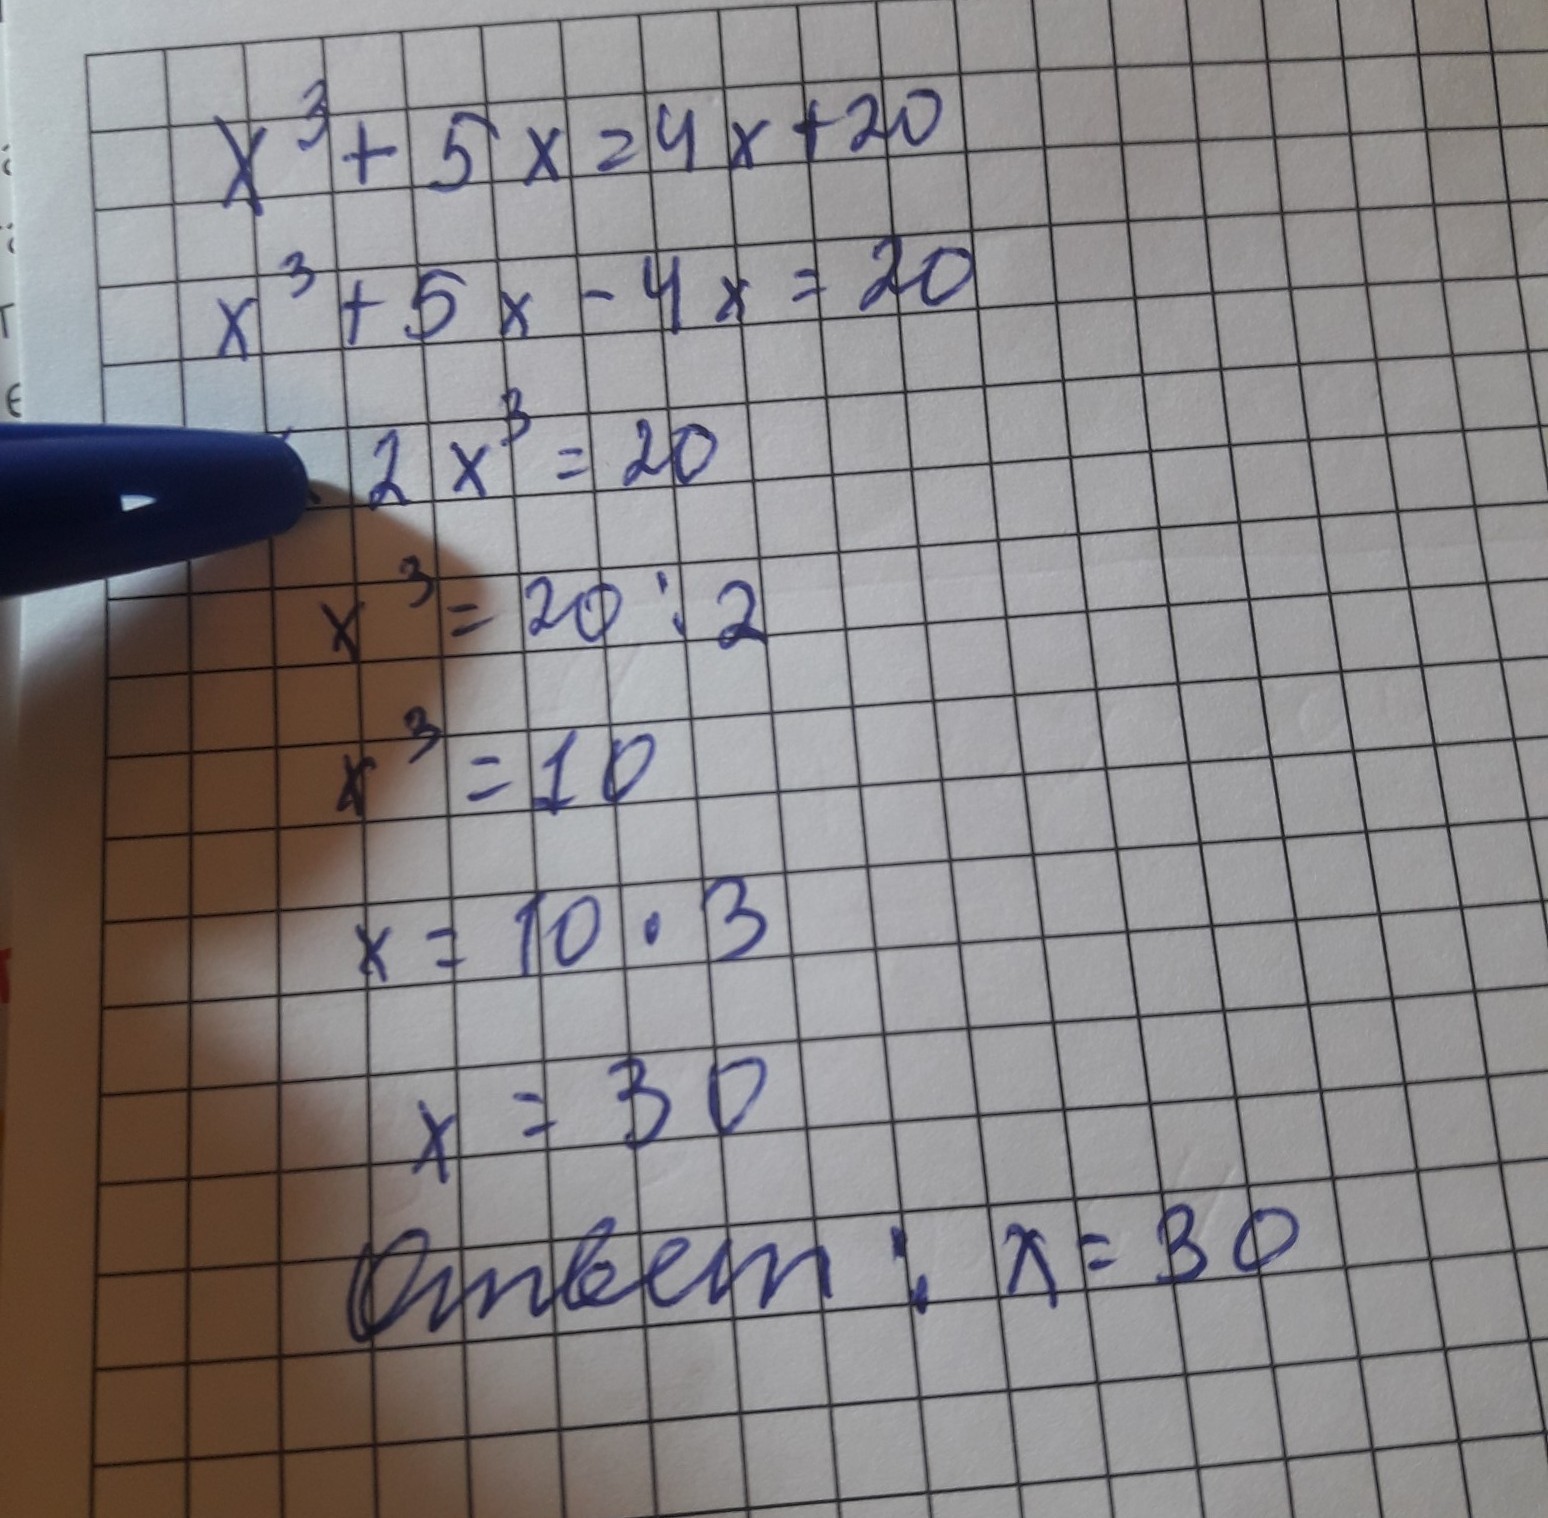 x³ + 5x = 4x + 20
x³ + 5x - 4x = 20
2x³ = 20
x³ = 20 : 2
x³ = 10
x = 10 · 3
x = 30
Ответ: x = 30